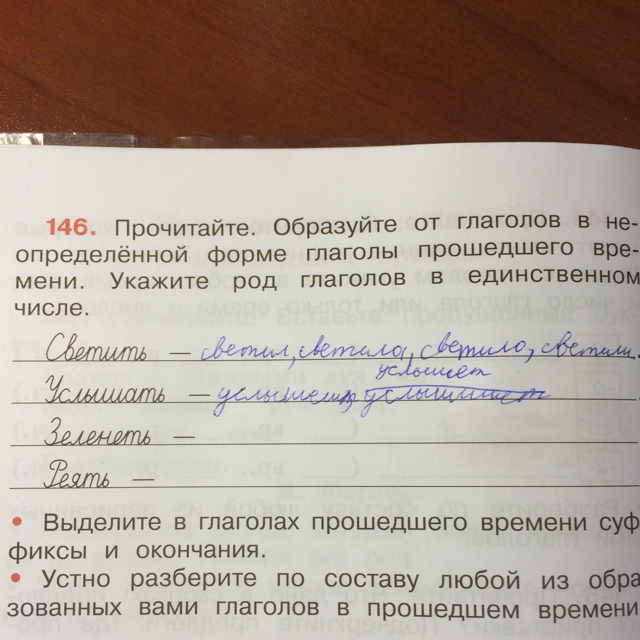 146. Прочитайте. Образуйте от глаголов в не-
определённой форме глаголы прошедшего вре-
мени. Укажите род глаголов в единственном
числе.
Светить — светил, светила, светило, светили.
услышет
Услышать —
Зеленеть —
Реять —
• Выделите в глаголах прошедшего времени суф
фиксы и окончания.
• Устно разберите по составу любой из обра
зованных вами глаголов в прошедшем времени